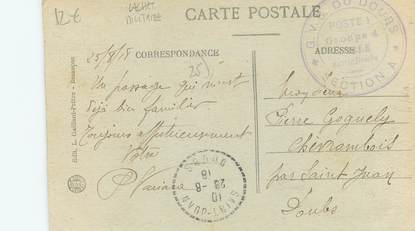 12€
CACHET
MILITAIRE
CARTE POSTALE
25/8/18 CORRESPONDANCE
(25)
ADRESSE
Un passage qui m'est
déjà bien familier
Toujours affectueusement
Votre
Pierre Goguely
Chèvrambois
par Saint Juan
Doubs
G.V.C. DU DOUBS
POSTE 1
Groupe 4
SECTION A
DOUBS
10
26-8
18
SAINT-JUAN
Edit. L. Gaillard-Prêtre - Besançon